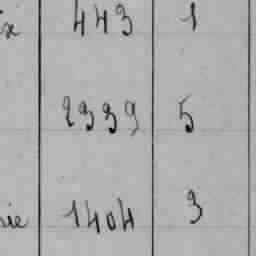 ix 443 1
2339 5
nie 1404 3